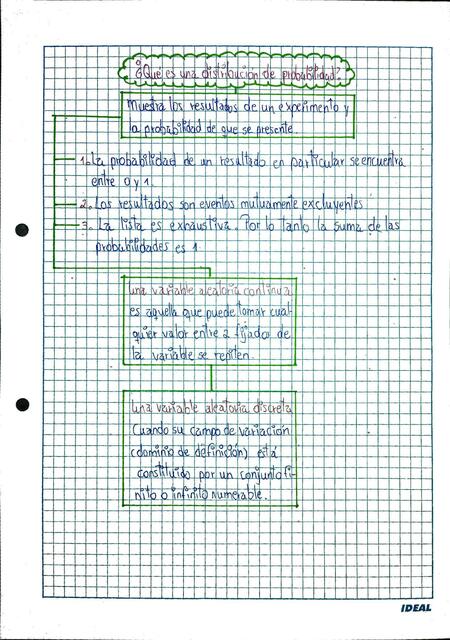 ¿Que es una distribución de probabilidad?
Muestra los resultados de un experimento y
la probabilidad de que se presente.
1. La probabilidad de un resultado en particular se encuentra
entre 0 y 1.
2. Los resultados son eventos mutuamente excluyentes
3. La lista es exhaustiva. Por lo tanto la suma de las
probabilidades es 1
una variable aleatoria continua
es aquella que puede tomar cual-
quier valor entre 2 fijados de
la variable se repiten.
una variable aleatoria discreta
Cuando su campo de variación
(dominio de definición) está
constituido por un conjunto fi-
nito o infinito numerable.
IDEAL